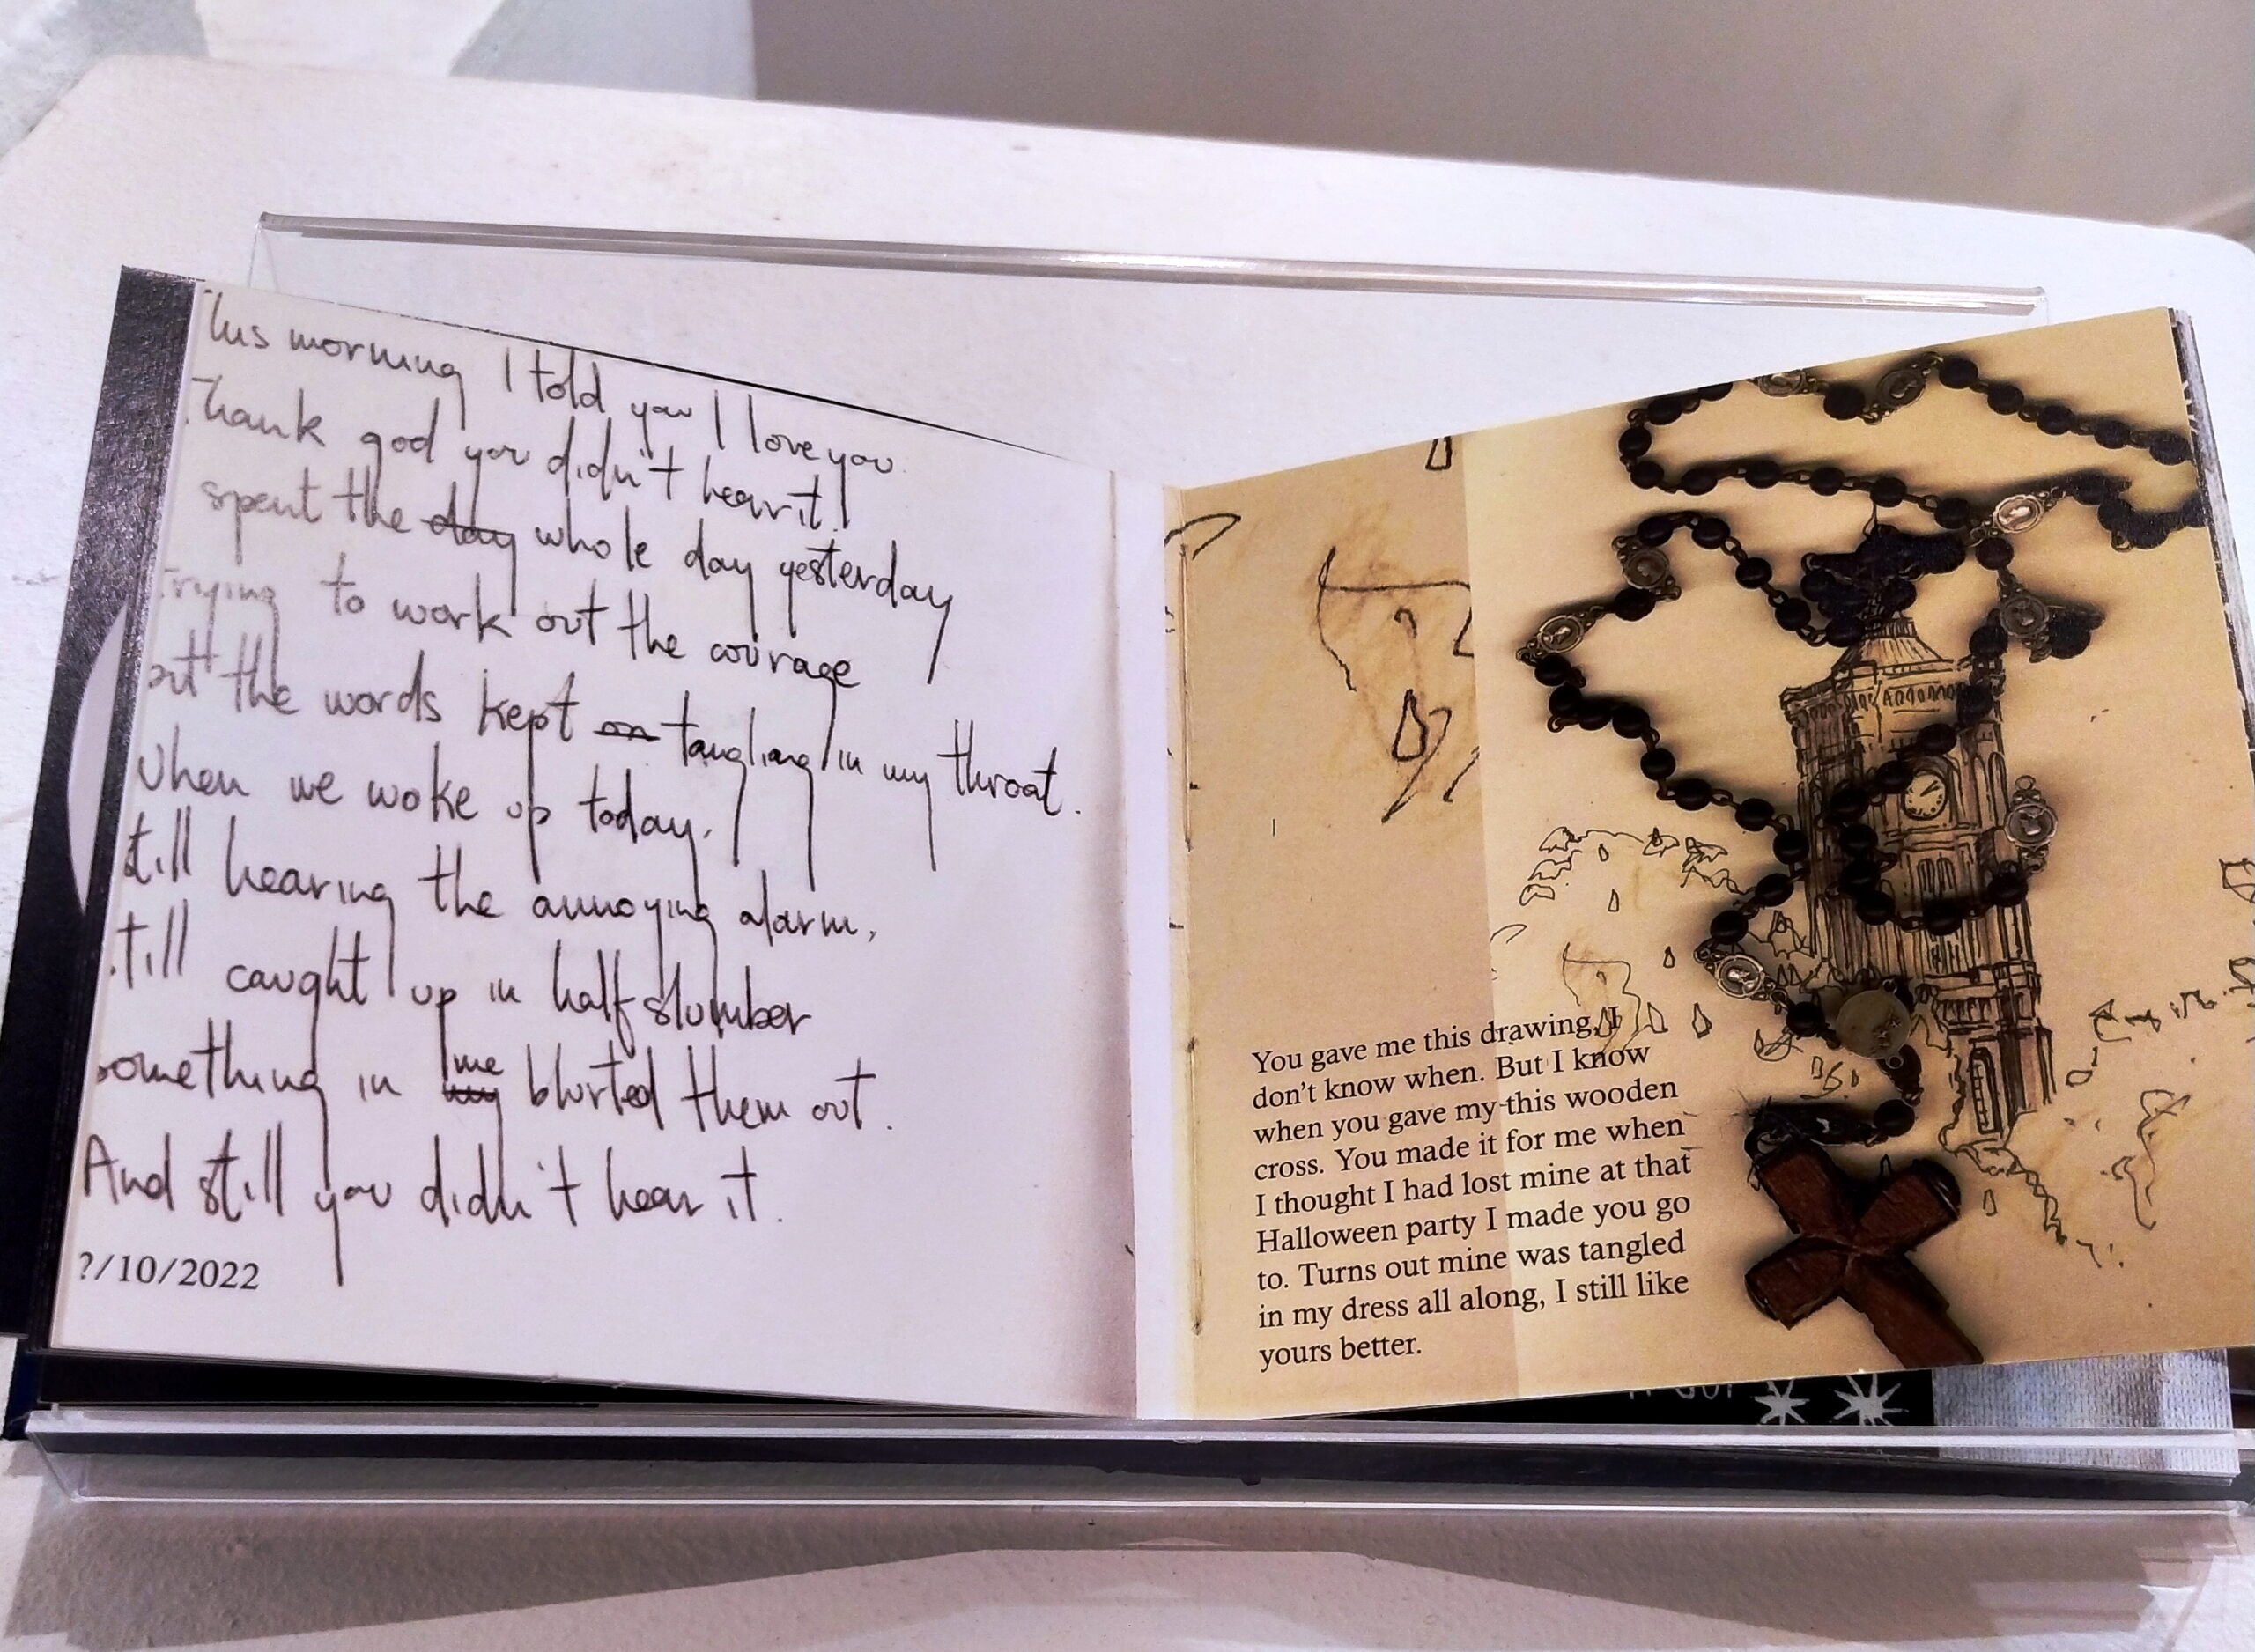 This morning I told you I love you
Thank god you didn't hear it.
spent the day whole day yesterday
trying to work out the courage
but the words kept on tangling in my throat.
when we woke up today.
still hearing the annoying alarm,
still caught up in half slumber
something in my me blurted them out.
And still you didn't hear it.
?/10/2022
You gave me this drawing, I
don't know when. But I know
when you gave my this wooden
cross. You made it for me when
I thought I had lost mine at that
Halloween party I made you go
to. Turns out mine was tangled
in my dress all along, I still like
yours better.